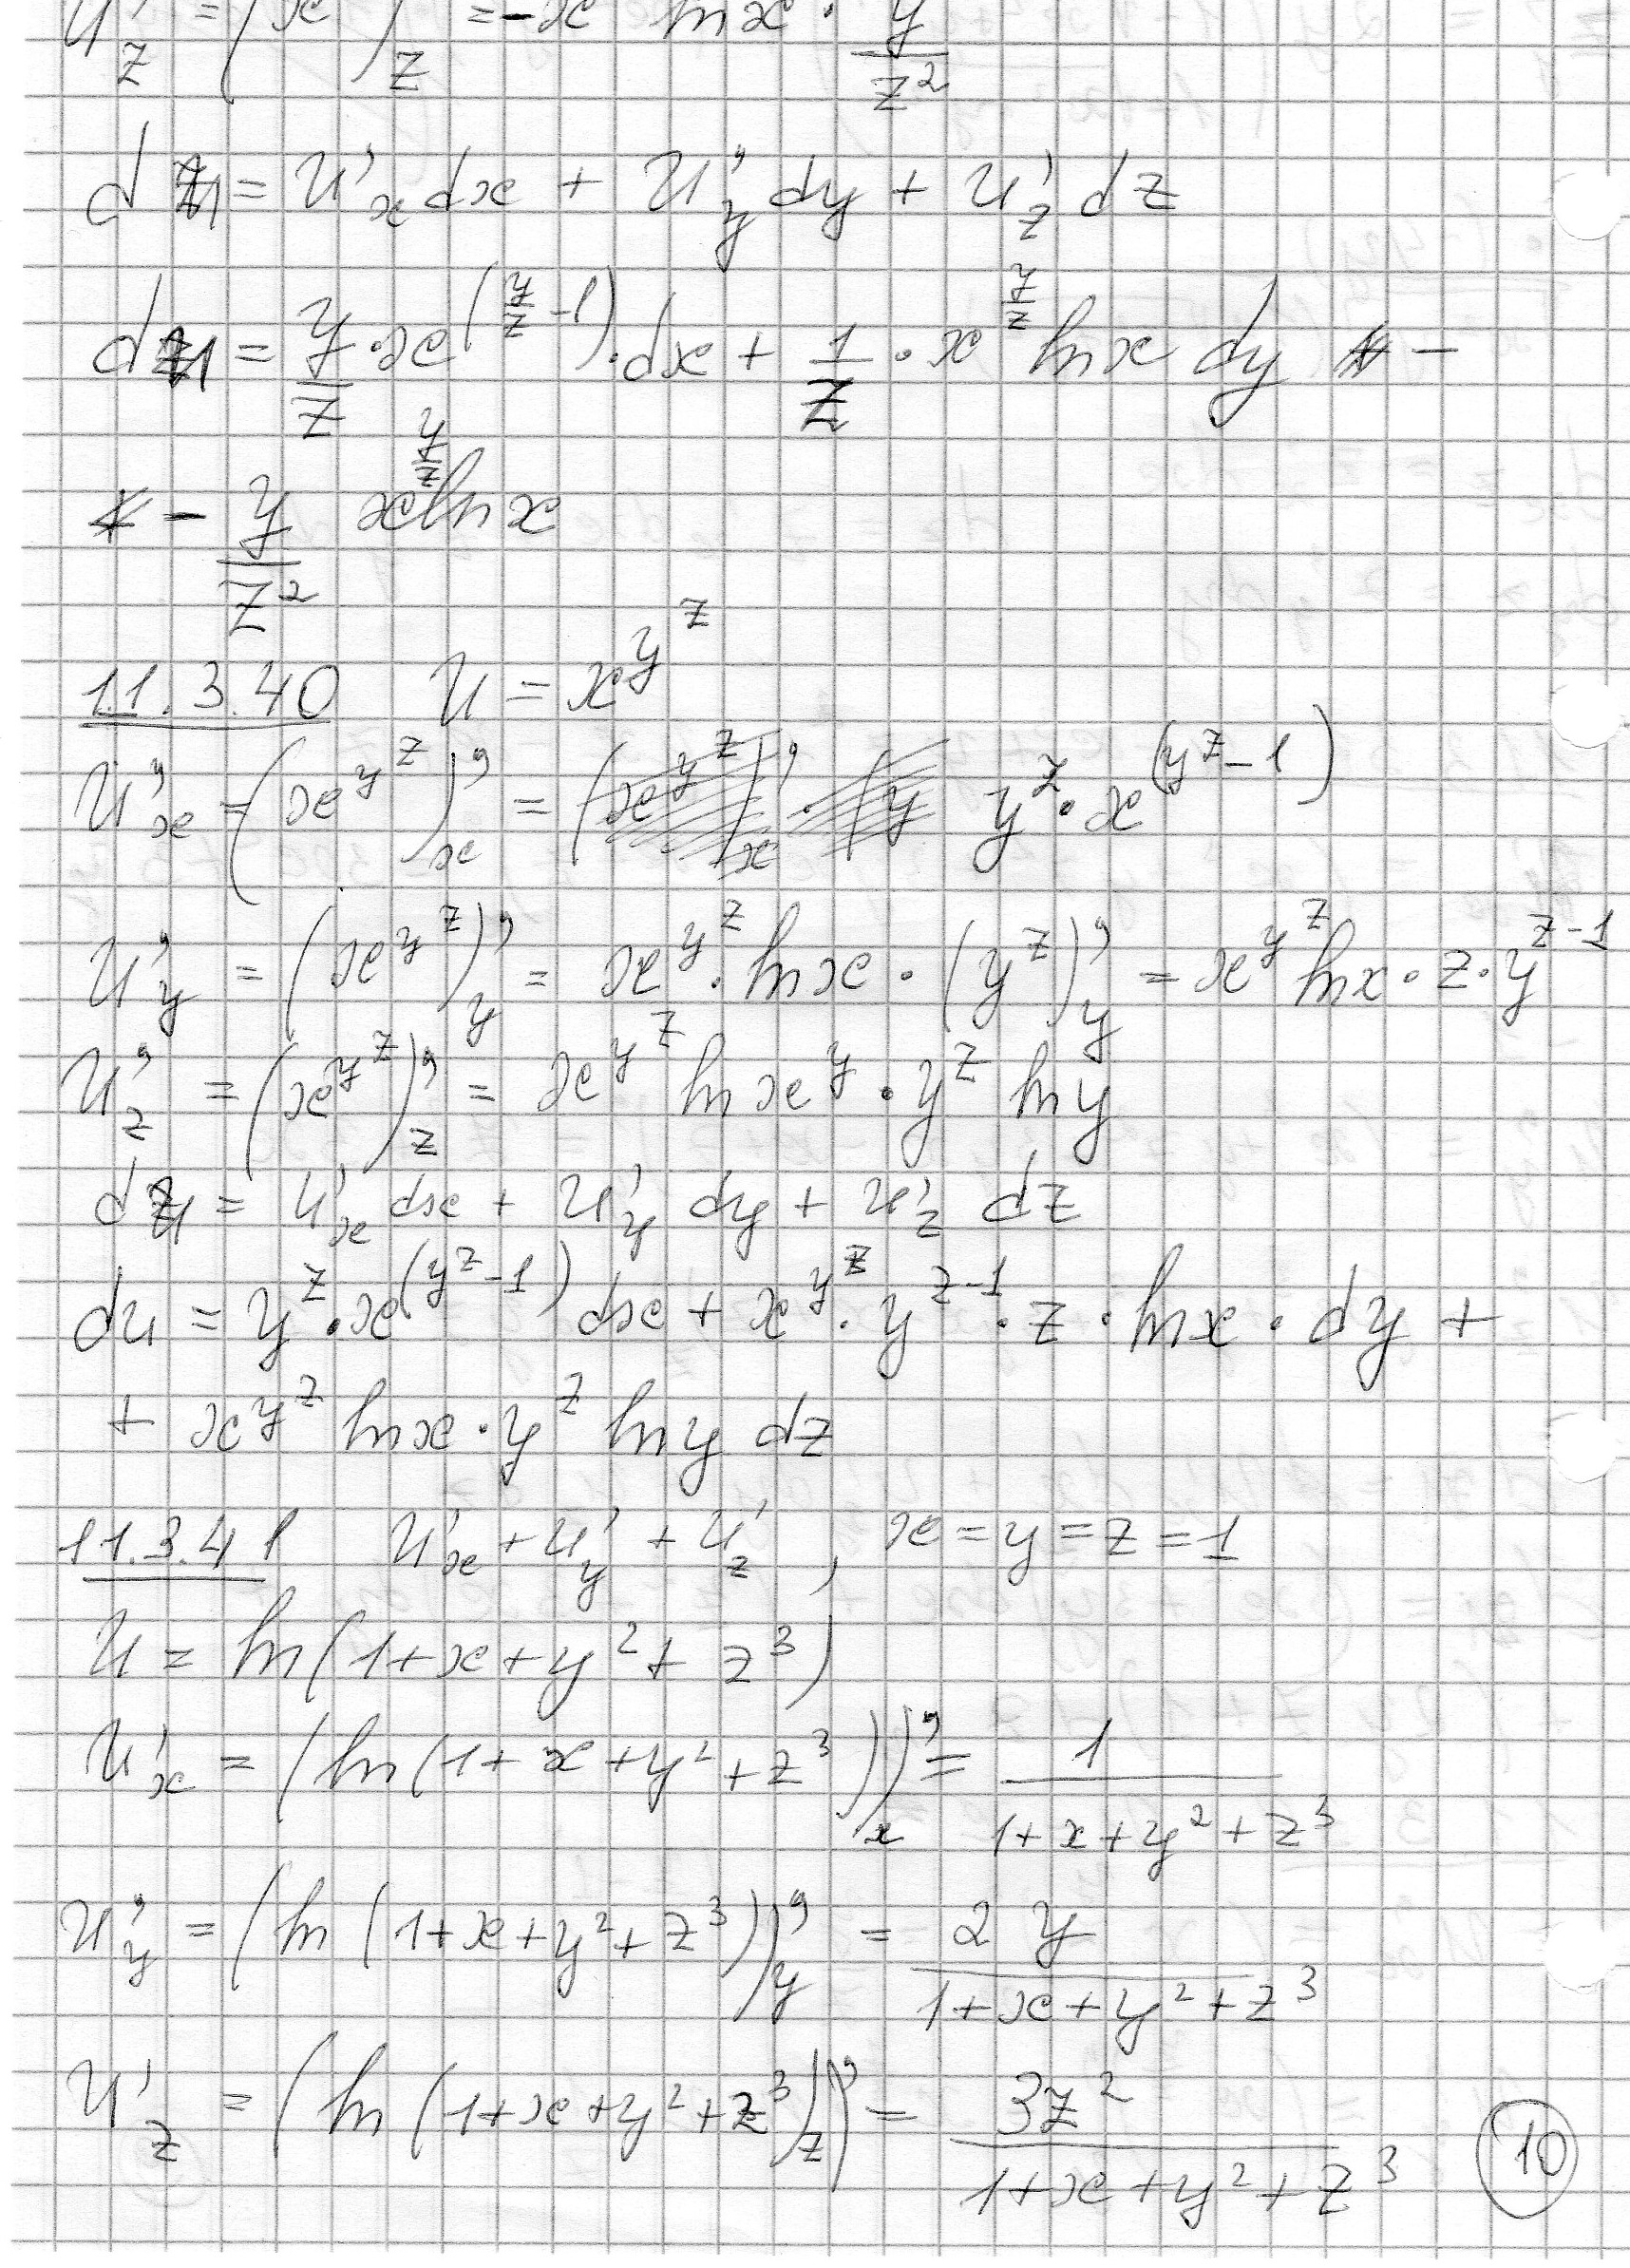 U'_z = (x )'_z = -x ln x · y/z²
du = U'_x dx + U'_y dy + U'_z dz
du = y/z · x^(y/z - 1) · dx + 1/z · x^(y/z) ln x dy -
- y/z² x^(y/z) ln x
11.3.40 U = x^y^z
U'_x = (x^y^z)'_x = y^z · x^(y^z - 1)
U'_y = (x^y^z)'_y = x^y^z · ln x · (y^z)'_y = x^y^z ln x · z · y^(z-1)
U'_z = (x^y^z)'_z = x^y^z ln x^y · y^z ln y
du = U'_x dx + U'_y dy + U'_z dz
du = y^z · x^(y^z - 1) dx + x^y^z · y^(z-1) · z · ln x · dy +
+ x^y^z ln x · y^z ln y dz
11.3.41 U'_x + U'_y + U'_z , x = y = z = 1
U = ln(1+x+y²+z³)
U'_x = (ln(1+x+y²+z³))'_x = 1/(1+x+y²+z³)
U'_y = (ln(1+x+y²+z³))'_y = 2y/(1+x+y²+z³)
U'_z = (ln(1+x+y²+z³))'_z = 3z²/(1+x+y²+z³)
10